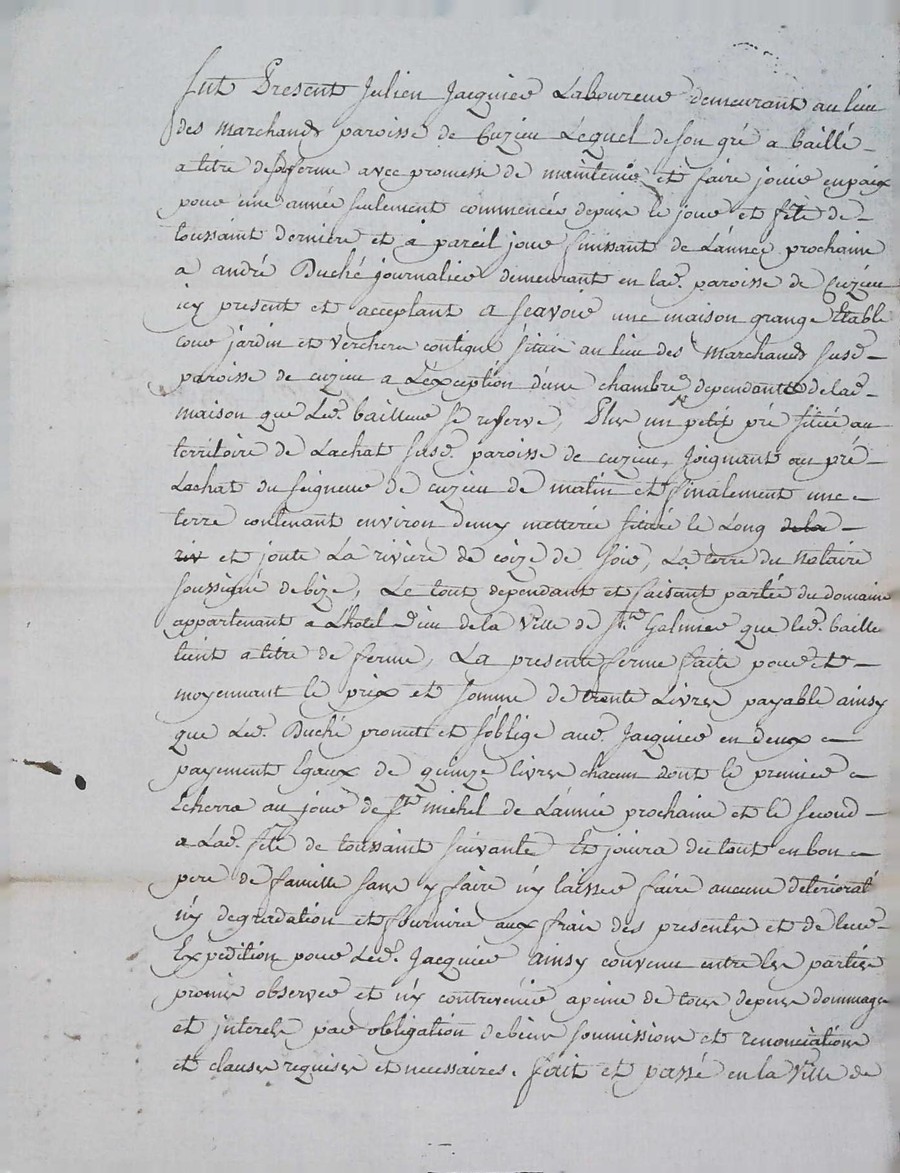 fut Present Julien Jacquier Laboureur demeurant au lieu
des marchands paroisse de Cuzieu Lequel de son gré a baillé
a titre de ferme avec promesse de maintenir et faire jouir en paix
pour une année seulement commencée depuis le jour et fête de
toussaint dernière et a pareil jour finissant de Lannée prochaine
a andré Duché journalier demeurant en lad. paroisse de Cuzieu
icy present et acceptant a scavoir une maison grange Etable
cour jardin et verchere contigue située au lieu des Marchands susd.
paroisse de cuzieu a Léxception dune chambre dependante de lad.
maison que Led. bailleur se reserve, Plus un petit pré situé au
territoire de Lachat susd. paroisse de cuzieu, Joignant au pré
Lachat du seigneur de cuzieu de matin et finalement une
terre contenant environ demy metterée située le Long de la
riv et joute La rivière de coize de soir, La terre du Notaire
soussigné de bize, Le tout dependant et faisant partie du domaine
appartenant a Lhotel Dieu de la Ville de St. Galmier que led. baille
tient a titre de ferme, La presente ferme faite pour et
moyennant le prix et somme de trente Livres payable ainsy
que Led. Duché promet et s'oblige aud. Jacquier en deux
payement Egaux de quinze livres chacun dont le premier
Echerra au jour de St michel de Lannée prochaine et le second
a Lad. fête de toussaint suivante Et jouira du tout en bon
pere de famille sans y faire n'y laisser faire aucune deteriorat
n'y degradation et fournira aux frais des presentes et de leur
Expedition pour Led. Jacquier Ainsy convenu entre les parties
promis observer et n'y contrevenir a peine de tous depens dommages
et interets par obligation de biens soumissions et renonciations
et clauses requises et necessaires. fait et passé en la Ville de